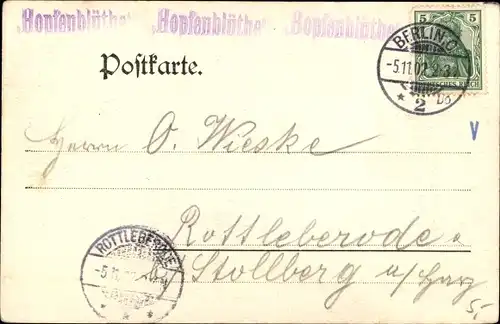 „Hopfenblüthe" „Hopfenblüthe" „Hopfenblüthe"
5 5
DEUTSCHES REICH
BERLIN C.
-5.11.02
* 2
Postkarte.
Herrn O. Wieske
V
Rottleberode
ROTTLEBERODE
-5.11
Stollberg a/Harz
* * *
5,-